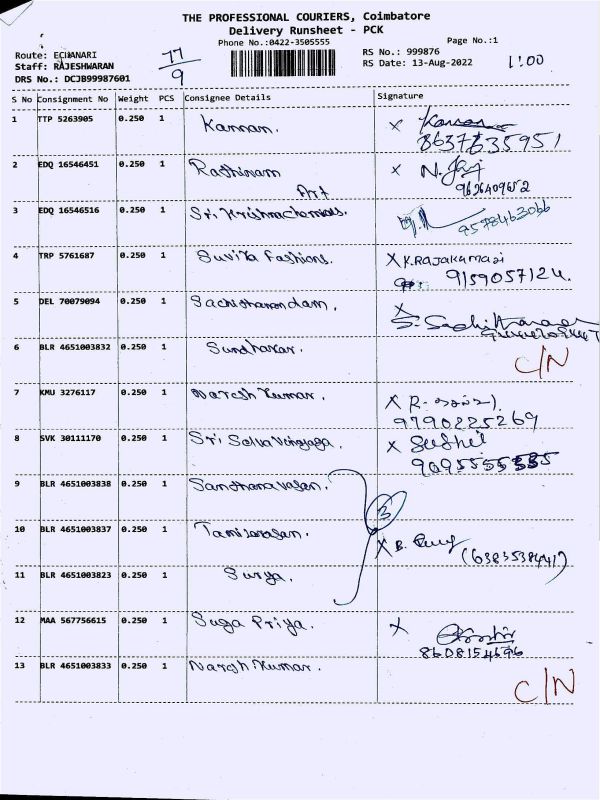 THE PROFESSIONAL COURIERS, Coimbatore
Delivery Runsheet - PCK
Phone No.:0422-3505555
Page No.:1
Route: ECHANARI
Staff: RAJESHWARAN
DRS No.: DCJB99987601
77/9
RS No.: 999876
RS Date: 13-Aug-2022
1:00
S No Consignment No Weight PCS Consignee Details Signature
1 TTP 5263905 0.250 1 Kannan.
X
2 EDQ 16546451 0.250 1 Rathinam X N.
Art
3 EDQ 16546516 0.250 1 Sri Krishna Chemicals.
9578463066
4 TRP 5761687 0.250 1 Suvita fashions. X K.RAJAKUMARI
9159057124
5 DEL 70079094 0.250 1 X
6 BLR 4651003832 0.250 1 Sundharar. C/N
7 KMU 3276117 0.250 1 Naresh Kumar. X R.
9790225269
8 SVK 30111170 0.250 1 Sri Selva Vinayaga. X
9 BLR 4651003838 0.250 1 Santhanavasan.
3
10 BLR 4651003837 0.250 1 Tamilarasan. X B.
(6383538441)
11 BLR 4651003823 0.250 1 Surya.
12 MAA 567756615 0.250 1 Suga Priya. X
8608154696
13 BLR 4651003833 0.250 1 Naresh Kumar. C/N